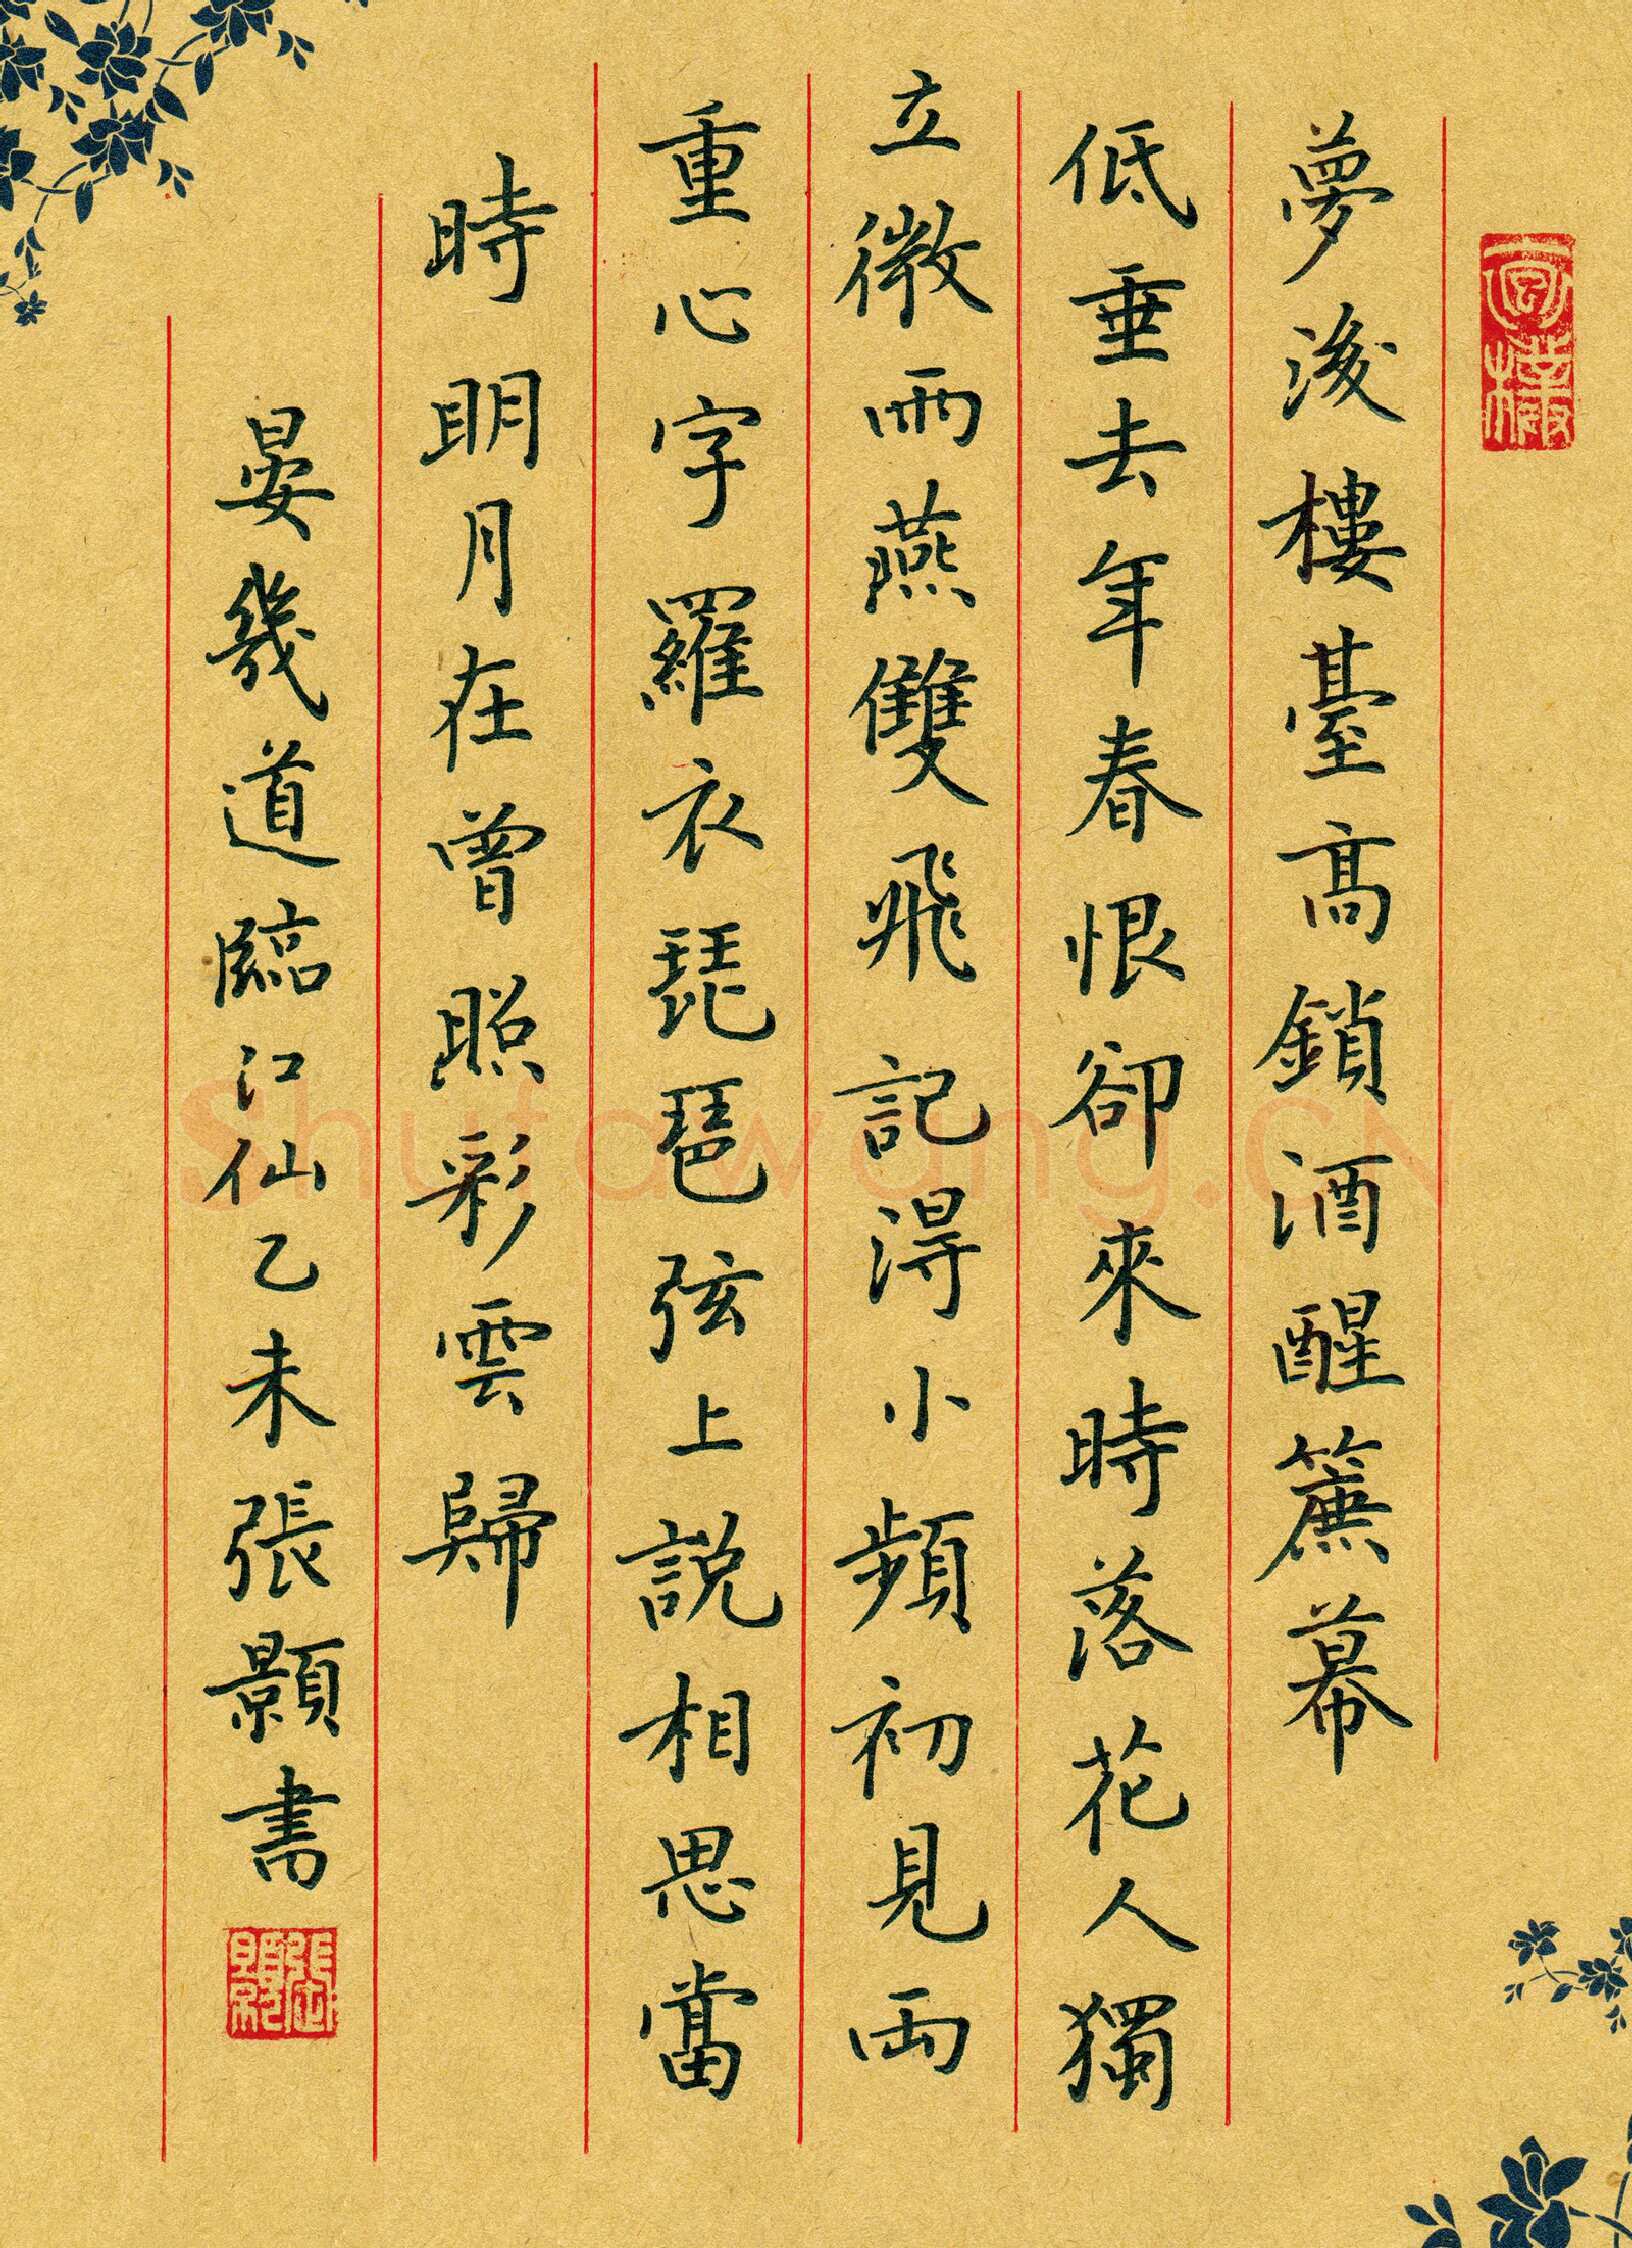 夢後樓臺高鎖酒醒簾幕
低垂去年春恨卻來時落花人獨
立微雨燕雙飛記得小蘋初見兩
重心字羅衣琵琶弦上說相思當
時明月在曾照彩雲歸
晏幾道臨江仙乙未張顥書
Shufawang.CN